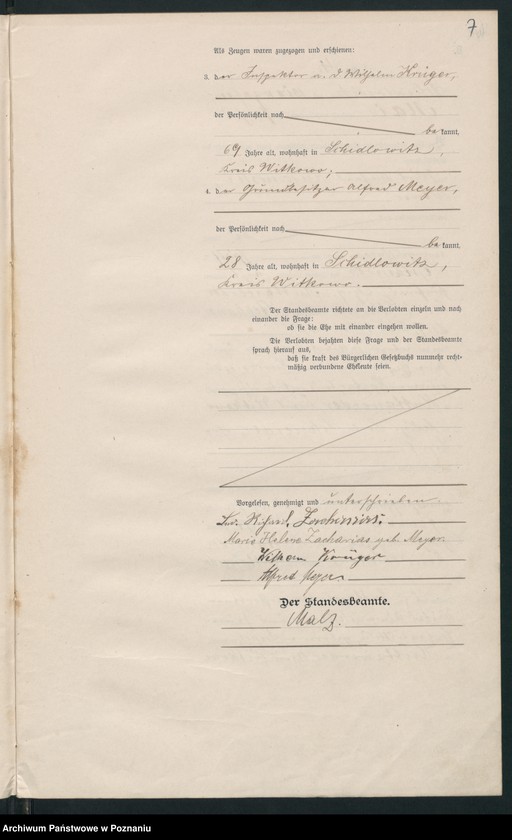 7
Als Zeugen waren zugezogen und erschienen:
3. der Inspektor a. D. Wilhelm Krüger,
der Persönlichkeit nach
be kannt,
69 Jahre alt, wohnhaft in Schidlowitz,
Kreis Witkowo;
4. der Grundbesitzer Alfred Meyer,
der Persönlichkeit nach
be kannt,
28 Jahre alt, wohnhaft in Schidlowitz,
Kreis Witkowo.
Der Standesbeamte richtete an die Verlobten einzeln und nach
einander die Frage:
ob sie die Ehe mit einander eingehen wollen.
Die Verlobten bejahten diese Frage und der Standesbeamte
sprach hierauf aus,
daß sie kraft des Bürgerlichen Gesetzbuchs nunmehr recht-
mäßig verbundene Eheleute seien.
Vorgelesen, genehmigt und unterschrieben.
Zacharias.
Marie Helene Zacharias geb. Meyer.
Wilhelm Krüger
Alfred Meyer
Der Standesbeamte.
Malz.
Archiwum Państwowe w Poznaniu